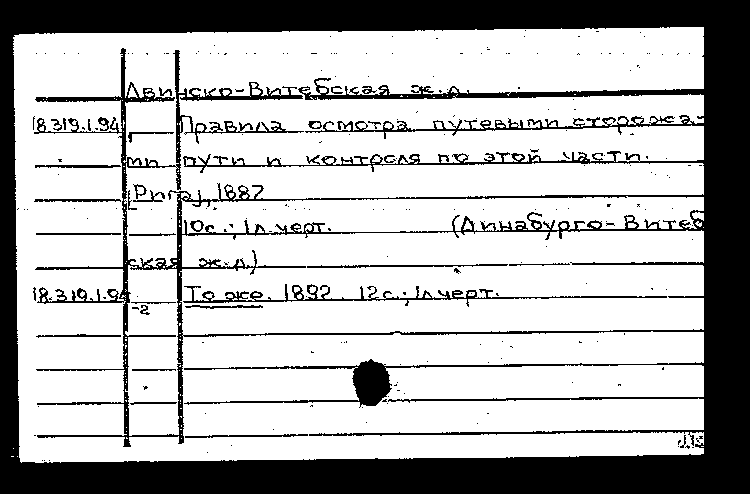 Двинско-Витебская ж.д.
18.319.1.94 Правила осмотра путевыми сторожа-
ми пути и контроля по этой части.
[Рига], 1887
10с.; 1л.черт. (Динабурго-Витеб
ская ж.д.)
18.319.1.94 То же. 1892. 12с.; 1л черт.
-2